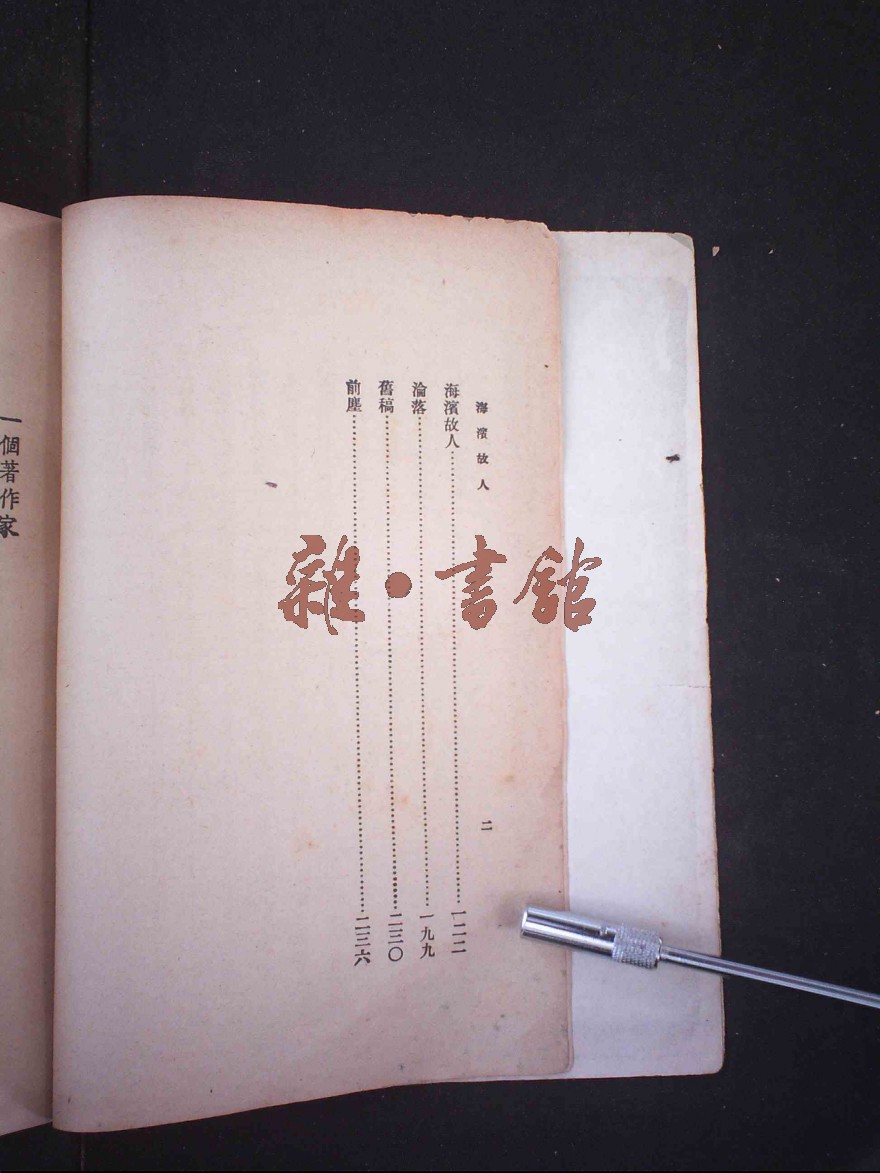 海濱故人
二
海濱故人……一二二
淪落……一九九
舊稿……二三〇
前塵……二三六
一個著作家
雜·書館